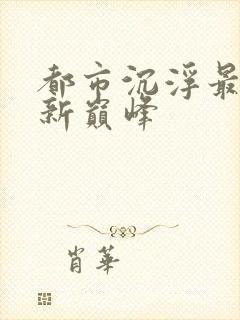 都市沉浮最
新巅峰
肖華